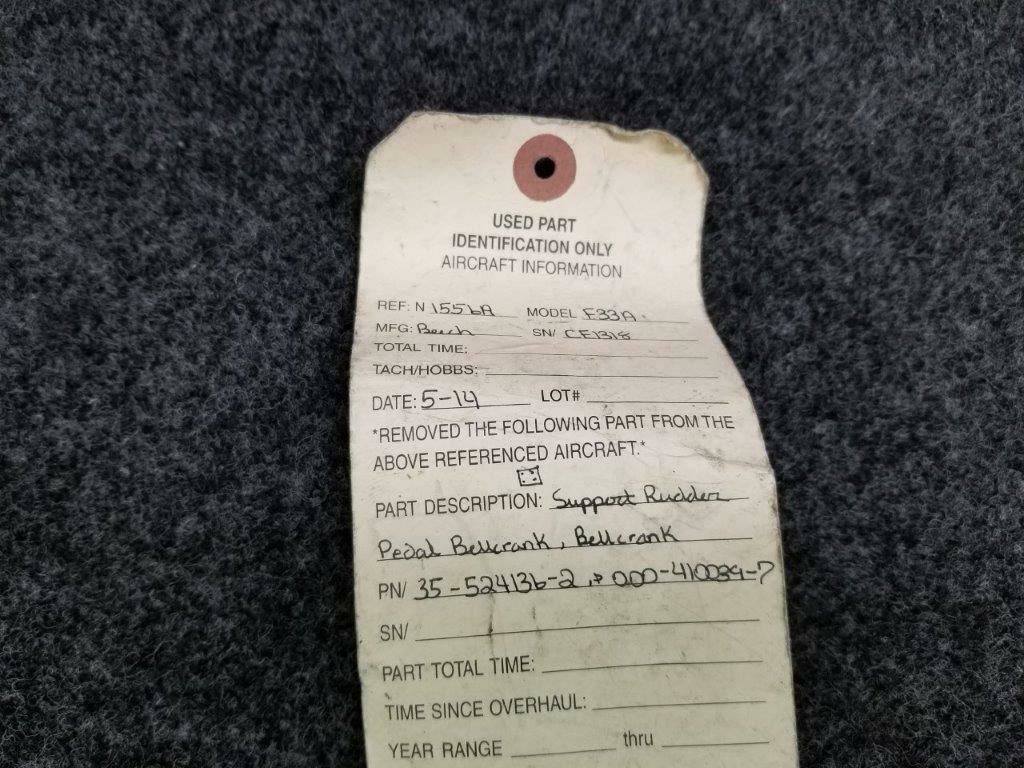 USED PART
IDENTIFICATION ONLY
AIRCRAFT INFORMATION
REF: N 1556A MODEL F33A
MFG: Beech SN/ CE1318
TOTAL TIME:
TACH/HOBBS:
DATE: 5-14 LOT#
*REMOVED THE FOLLOWING PART FROM THE
ABOVE REFERENCED AIRCRAFT.*
PART DESCRIPTION: Support Rudder
Pedal Bellcrank, Bellcrank
PN/ 35-524136-2, & 000-410039-7
SN/
PART TOTAL TIME:
TIME SINCE OVERHAUL:
YEAR RANGE thru